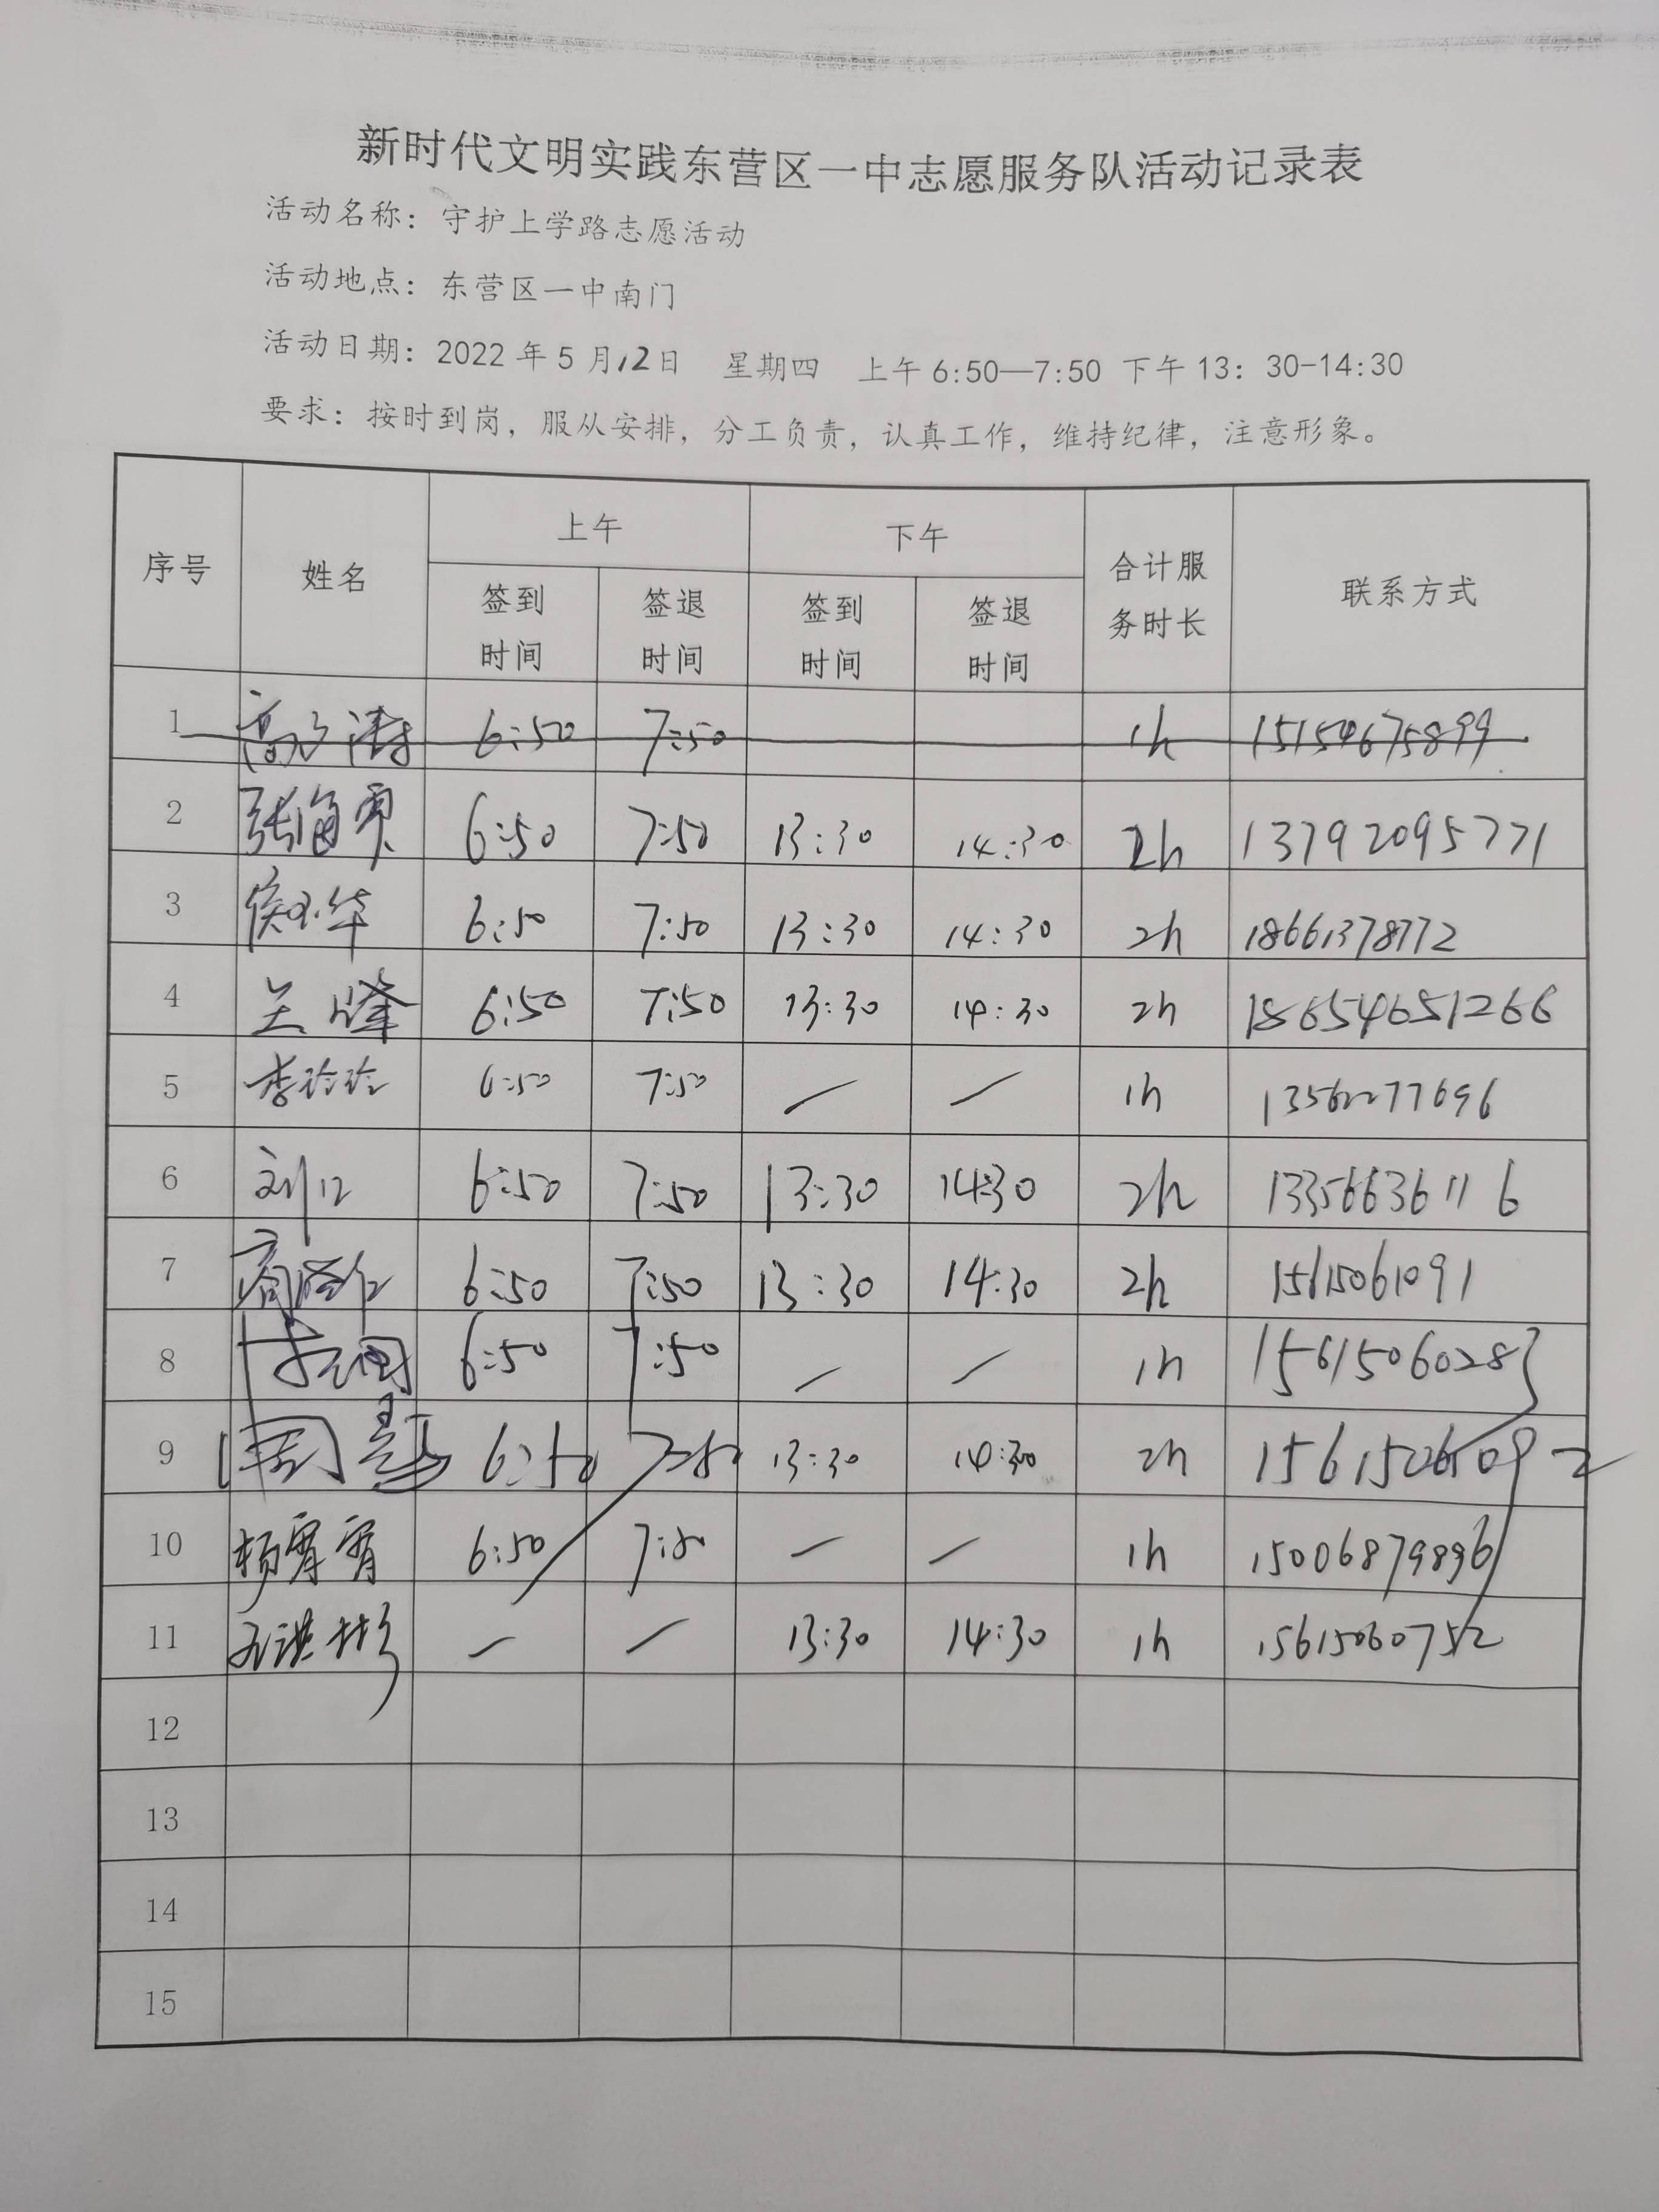 新时代文明实践东营区一中志愿服务队活动记录表
活动名称：守护上学路志愿活动
活动地点：东营区一中南门
活动日期：2022 年 5 月12日 星期四 上午 6:50—7:50 下午 13：30-14:30
要求：按时到岗，服从安排，分工负责，认真工作，维持纪律，注意形象。
序号 姓名 上午 下午 合计服务时长 联系方式
签到时间 签退时间 签到时间 签退时间
1 6:50 7:50 1h 15154675899
2 6:50 7:50 13:30 14:30 2h 13792095771
3 6:50 7:50 13:30 14:30 2h 18661378772
4 6:50 7:50 13:30 14:30 2h 18654681266
5 李玲玲 6:50 7:50 — — 1h 13562277696
6 6:50 7:50 13:30 14:30 2h 13356636116
7 6:50 7:50 13:30 14:30 2h 15615061091
8 6:50 7:50 — — 1h
9 6:50 7:50 13:30 14:30 2h
10 杨霄霄 6:50 7:50 — — 1h 15006879896
11 — — 13:30 14:30 1h 15615060752
12
13
14
15